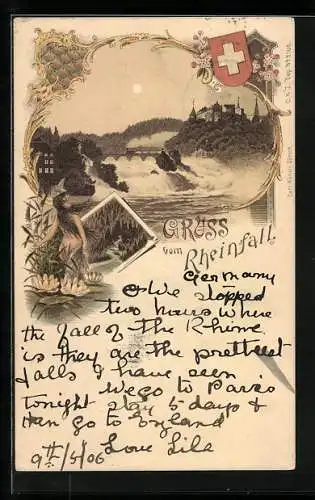 GRUSS
vom Rheinfall.
Germany
We stopped
two hours where
the fall of the Rhine
is they are the prettiest
falls I have seen
We go to Paris
tonight stay 5 days &
then go to England
Love Lile
9th/5/06